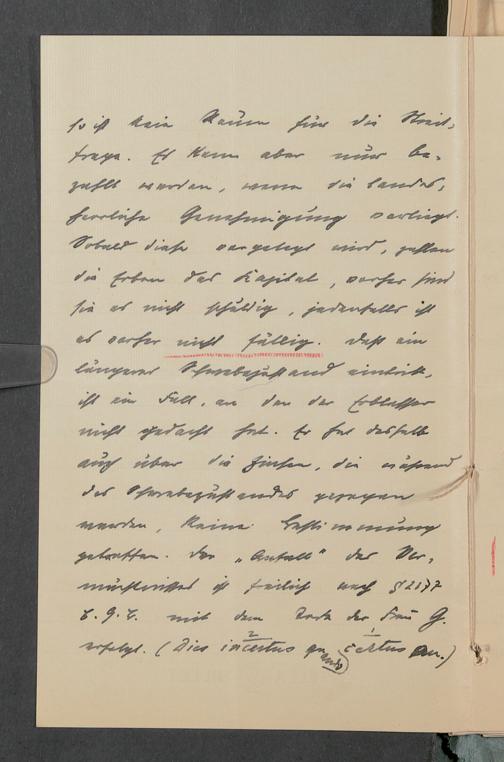 so ist kein Raum für die Streit-
frage. Er kann aber nur be-
zahlt werden, wenn die landes-
herrliche Genehmigung vorliegt.
Sobald diese vorgelegt wird, zahlen
die Erben das Kapital, vorher sind
sie es nicht schuldig, jedenfalls ist
es vorher nicht fällig. Daß ein
längerer Schwebezustand eintritt,
ist ein Fall, an den der Erblasser
nicht gedacht hat. Er hat deshalb
auch über die Zinsen, die während
des Schwebezustandes gezogen
werden, keine Bestimmung
getroffen. Der „Anfall" des Ver-
mächtnisses ist freilich nach § 2177
B.G.B. mit dem Tode der Frau G.
erfolgt. (Dies incertus quando, certus an.)